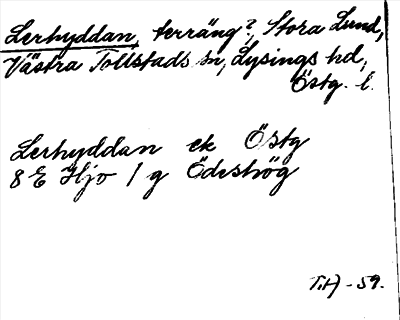 Lerhyddan, terräng?, Stora Lund,
Västra Tollstads sn, Lysings hd,
Östg. l.
Lerhyddan ek Östg
8 E Hjo 1 g Ödeshög
T.H. -59.